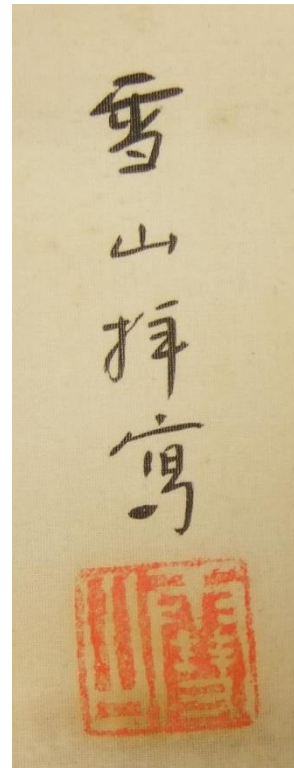 雪山拝寫
雪山